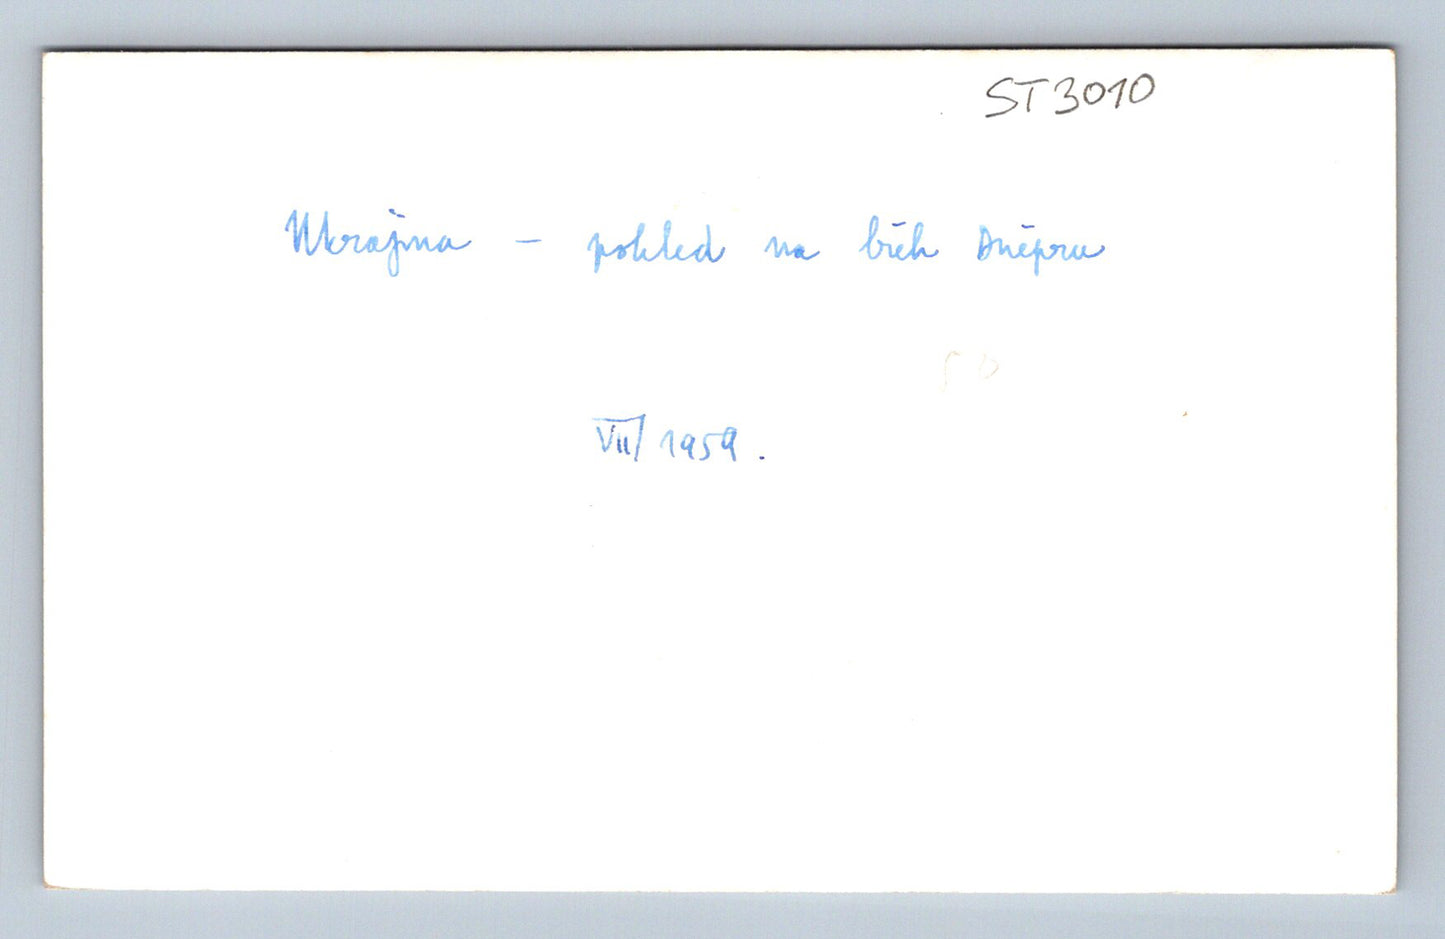 ST3010
Ukrajina – pohled na břeh Dněpru
VII/1959.